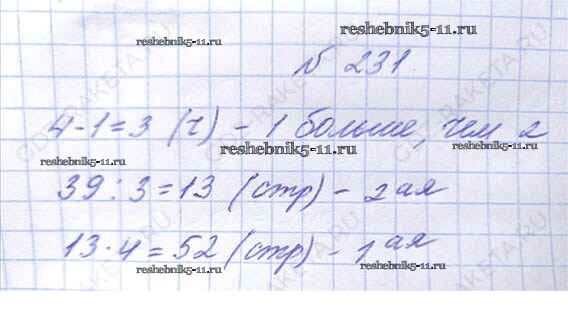 reshebnik5-11.ru
reshebnik5-11.ru
№ 231.
4-1=3 (ч) - 1 больше, чем 2
reshebnik5-11.ru
reshebnik5-11.ru
reshebnik5-11.ru
39:3=13 (стр) - 2ая
13·4=52 (стр) - 1ая
reshebnik5-11.ru
reshebnik5-11.ru